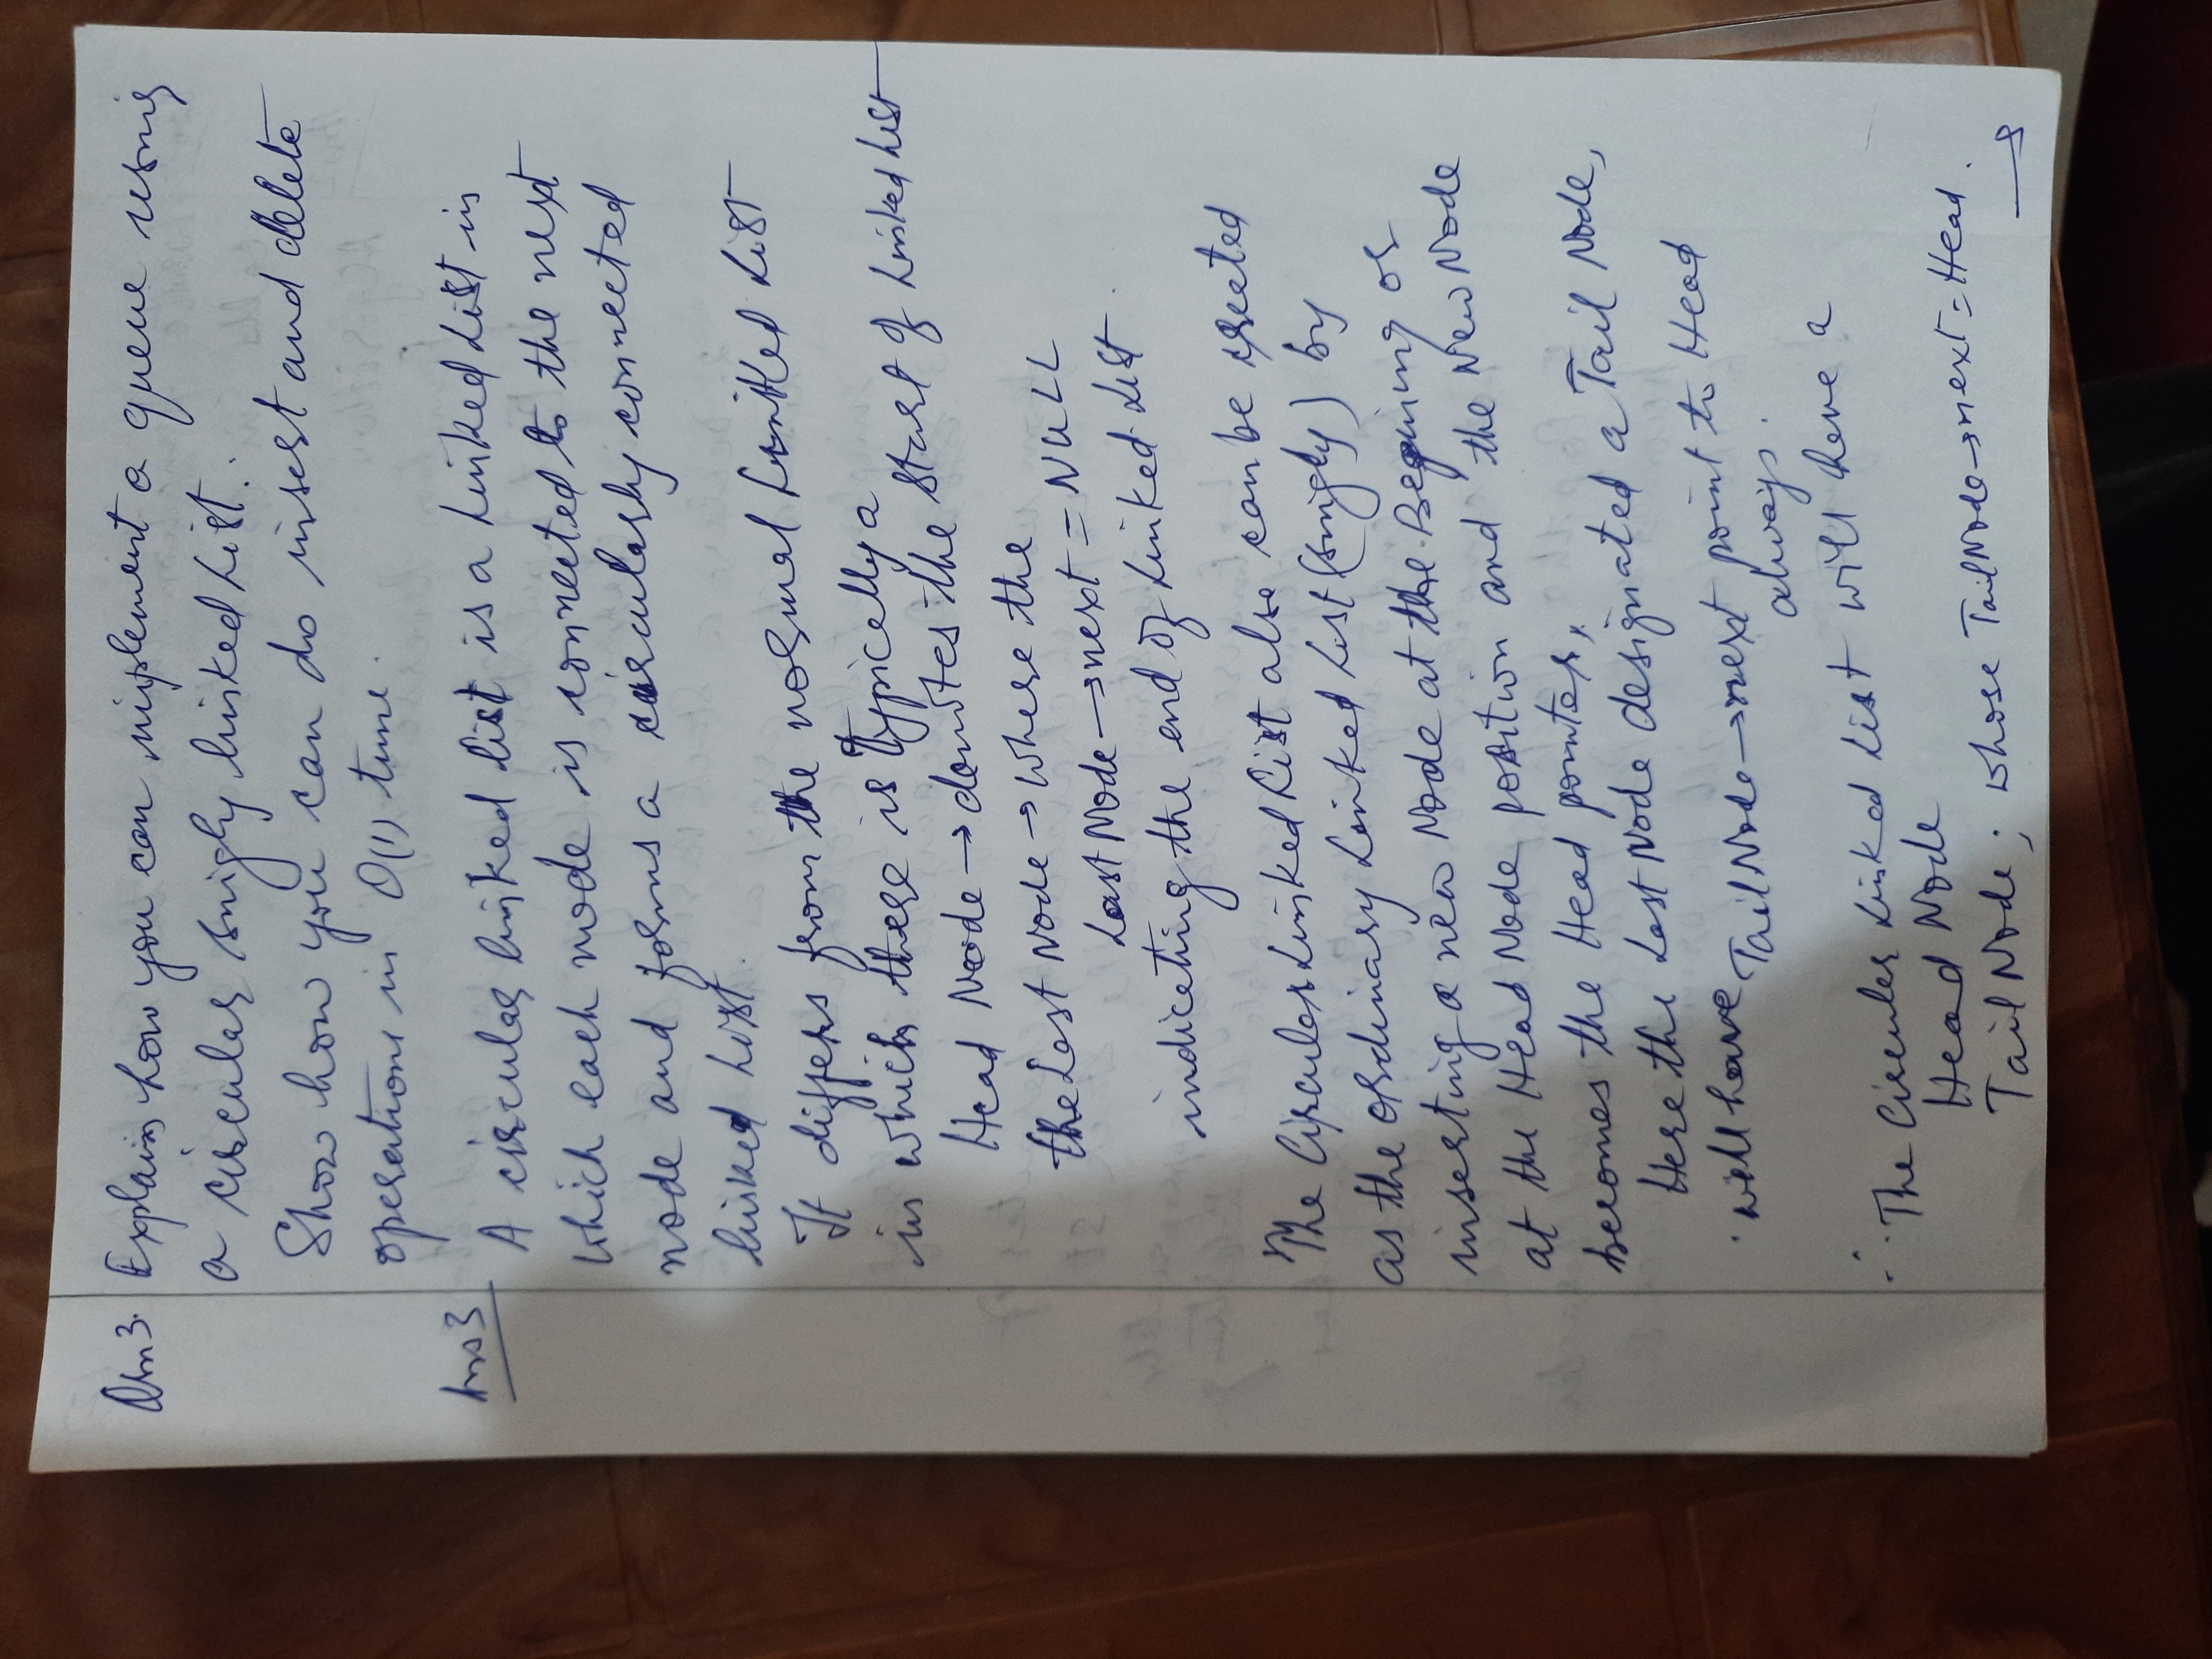 Qn 3. Explain how you can implement a queue using
a circular singly linked list.
Show how you can do insert and delete
operations in O(1) time.
Ans 3
A circular linked list is a linked list in
which each node is connected to the next
node and forms a circularly connected
linked list.
It differs from the normal Linked List
in which there is typically a
Head Node → denotes the start of Linked List
the Last Node → where the
Last Node → next = NULL
indicating the end of Linked List.
The Circular Linked List also can be created
as the ordinary Linked List (singly) by
inserting a new Node at the Begining or
at the Head Node position and the New Node
becomes the Head pointer,
Here the Last Node designated a Tail Node,
will have Tail Node → next point to Head
always.
∴ The Circular Linked List will have a
Head Node
Tail Node ; whose Tail Node → next = Head.